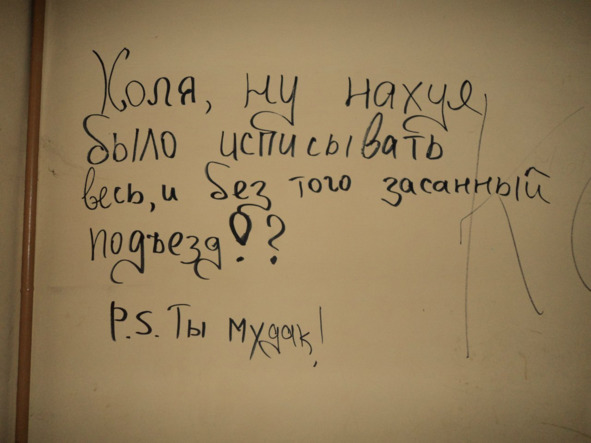 Коля, ну нахуя
было исписывать
весь, и без того засанный
подъезд!?
P.S. Ты мудак!